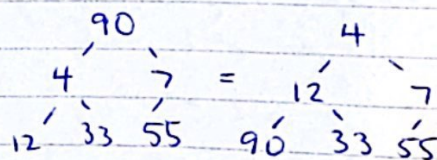 90 4
4 7 = 12 7
12 33 55 90 33 55